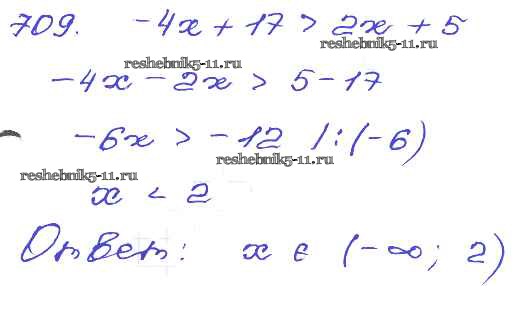 709. -4x + 17 > 2x + 5
reshebnik5-11.ru
reshebnik5-11.ru
-4x - 2x > 5 - 17
-6x > -12 /:(-6)
reshebnik5-11.ru
reshebnik5-11.ru
x < 2
Ответ: x ∈ (-∞; 2)